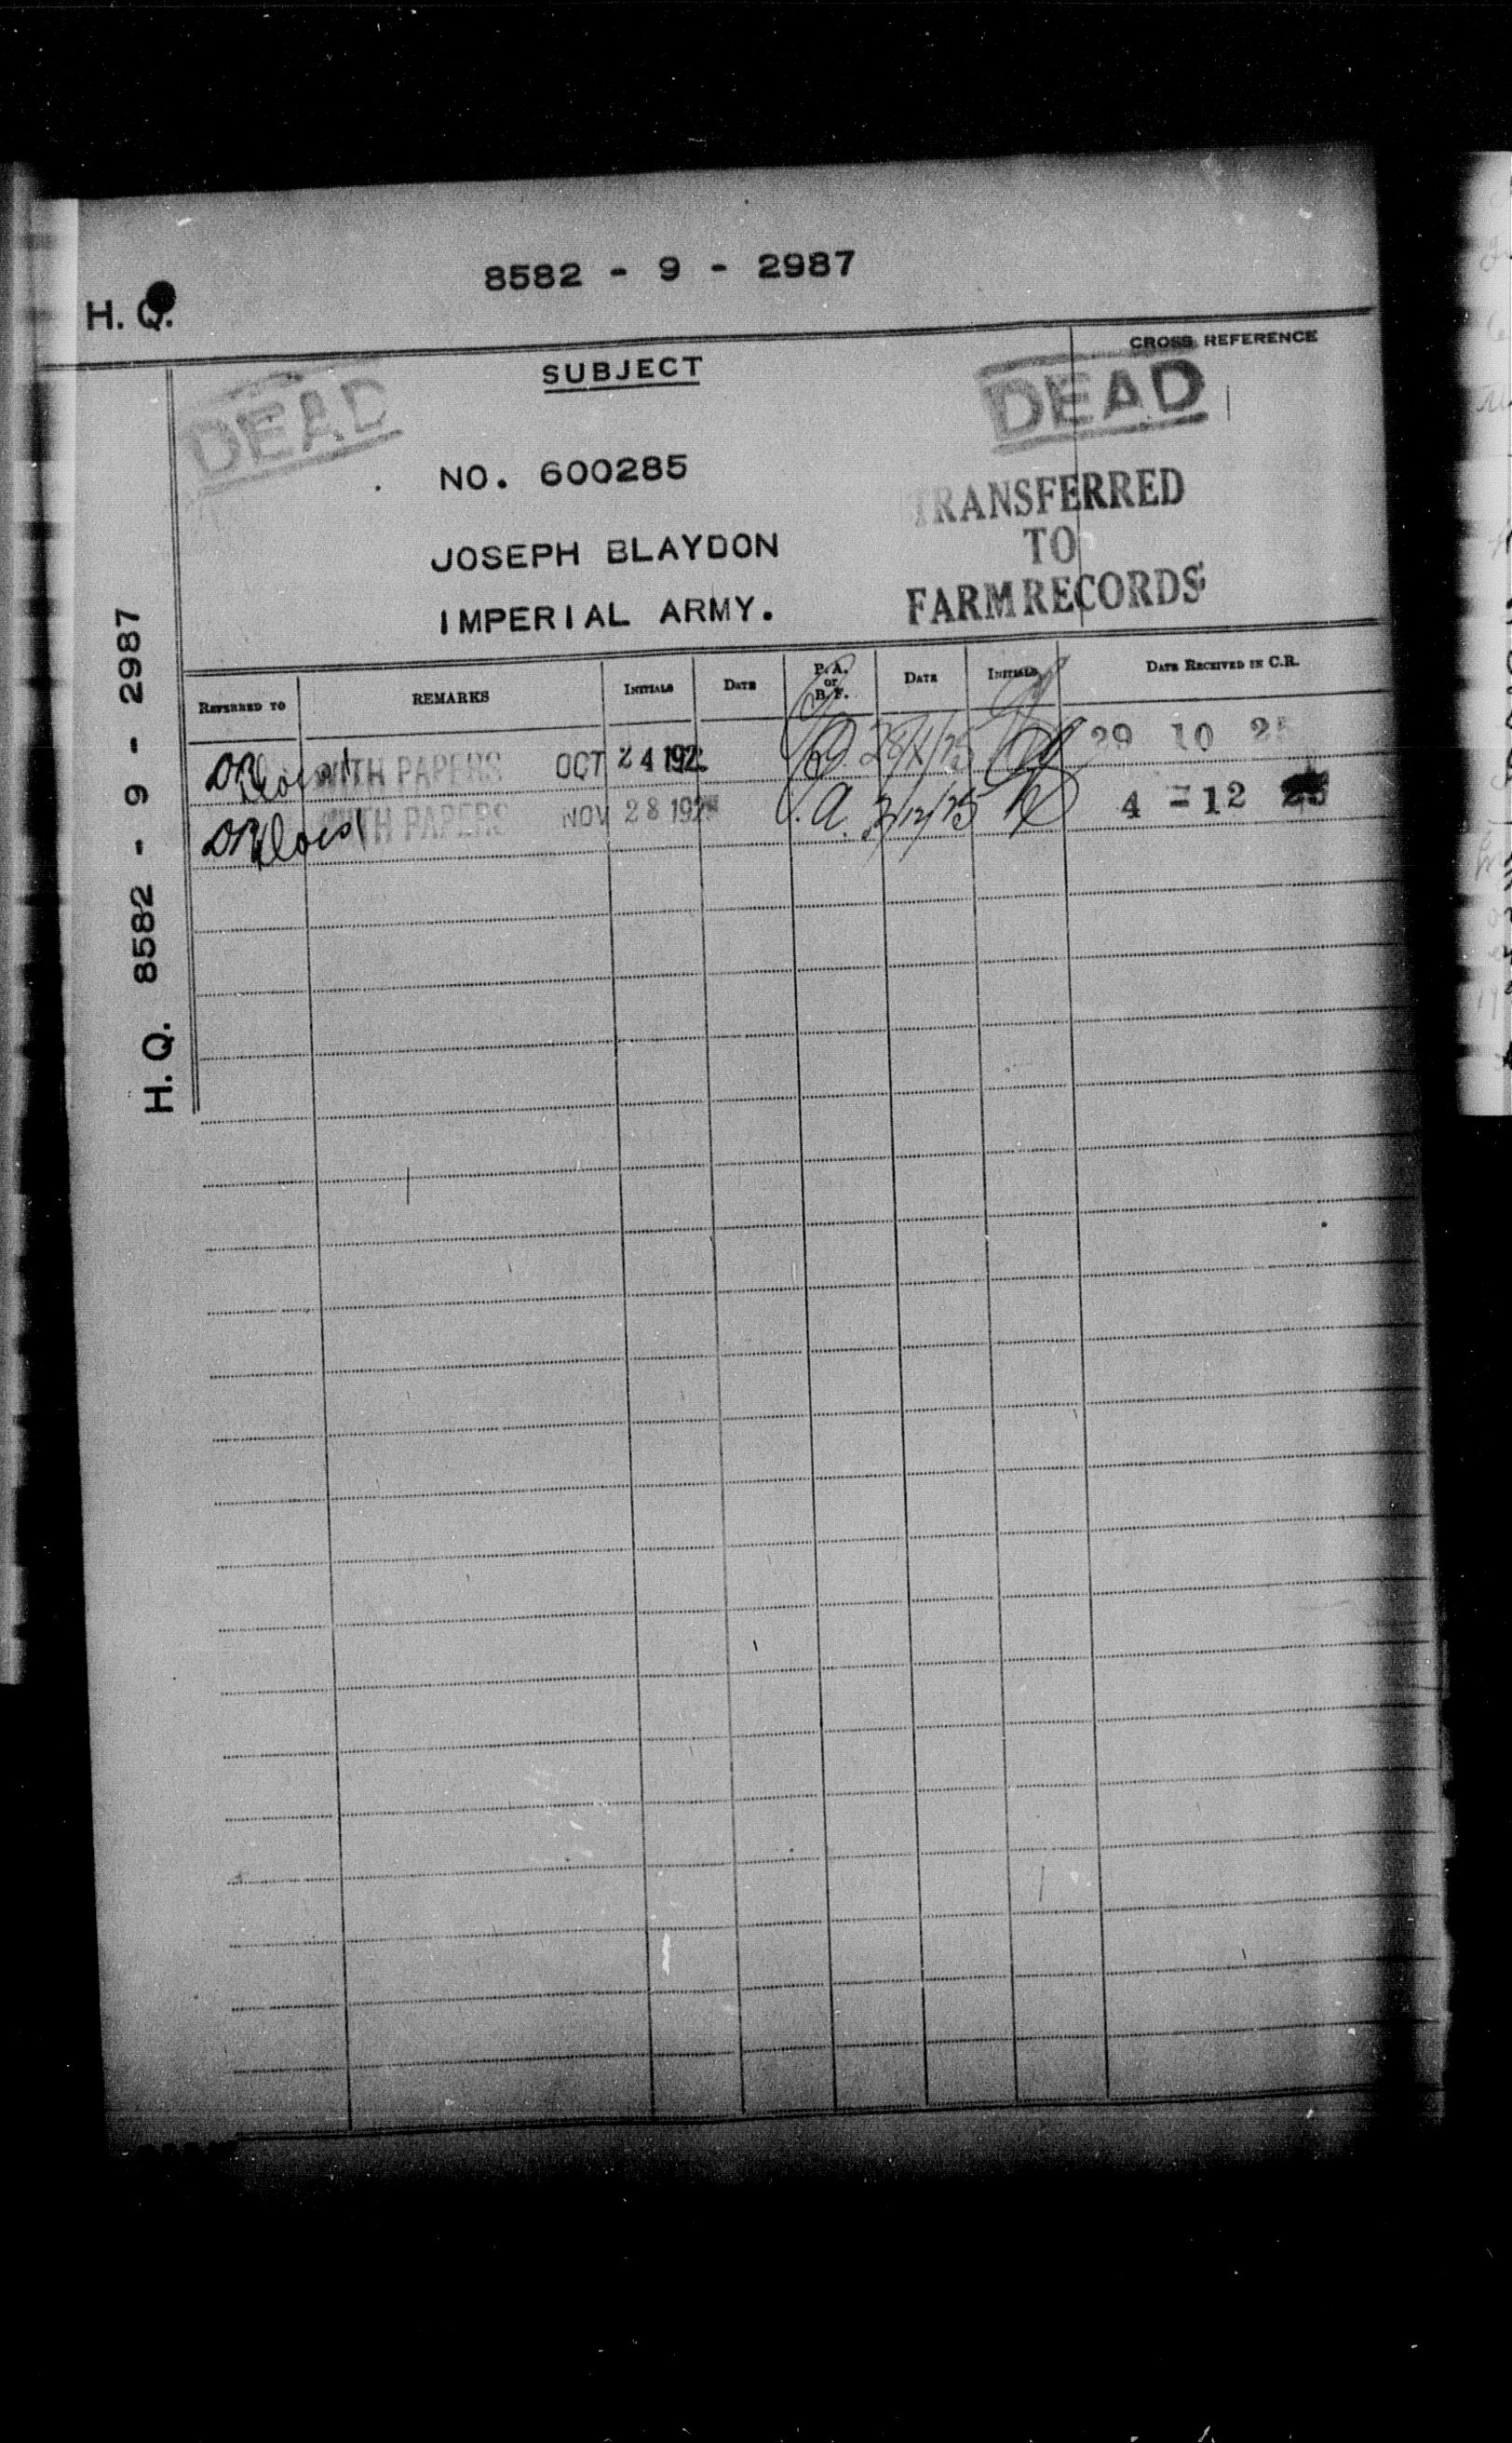 8582 - 9 - 2987
H. Q.
CROSS REFERENCE
SUBJECT
DEAD
DEAD
NO. 600285
TRANSFERRED
TO
FARM RECORDS
JOSEPH BLAYDON
IMPERIAL ARMY.
H. Q. 8582 - 9 - 2987
REFERRED TO REMARKS INITIALS DATE P. A. or B. F. DATE INITIALS DATE RECEIVED IN C.R.
WITH PAPERS OCT 24 192 29 10 25
WITH PAPERS NOV 28 192 P.A. 3/12/25 4 - 12 25